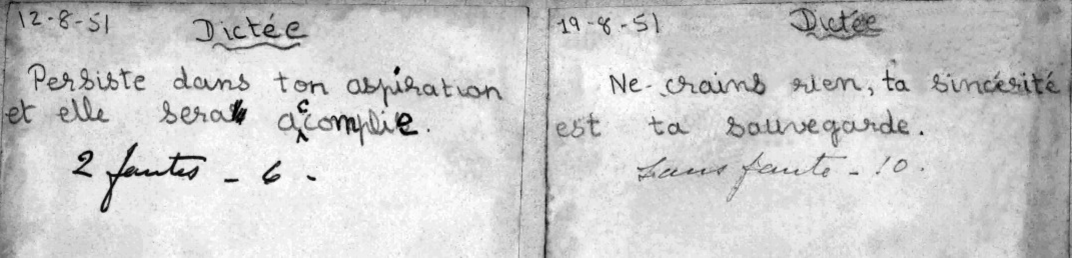 12-8-51
Dictée
Persiste dans ton aspiration
et elle sera accomplie.
2 fautes - 6.
19-8-51
Dictée
Ne crains rien, ta sincérité
est ta sauvegarde.
Sans faute - 10.